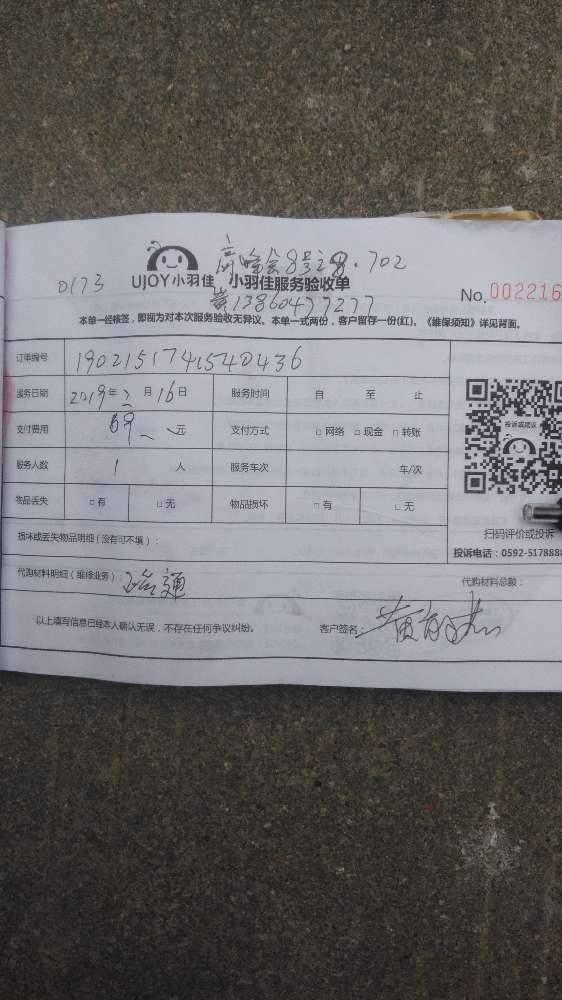 0173 UJOY小羽佳 小羽佳服务验收单
8号之 702
黄13860477277
No. 002216
本单一经核签，即视为对本次服务验收无异议。本单一式两份，客户留存一份(红)。《维保须知》详见背面。
订单编号 1902151741540436
服务日期 2019年2月16日 服务时间 自 至 止
支付费用 69 元 支付方式 □网络 □现金 □转账
服务人数 1 人 服务车次 车/次
物品丢失 □有 □无 物品损坏 □有 □无
投诉或建议
扫码评价或投诉
投诉电话：0592-517888
损坏或丢失物品明细（没有可不填）：
代购材料明细（维修业务）： 通 代购材料总额：
以上填写信息已经本人确认无误，不存在任何争议纠纷。 客户签名： 黄